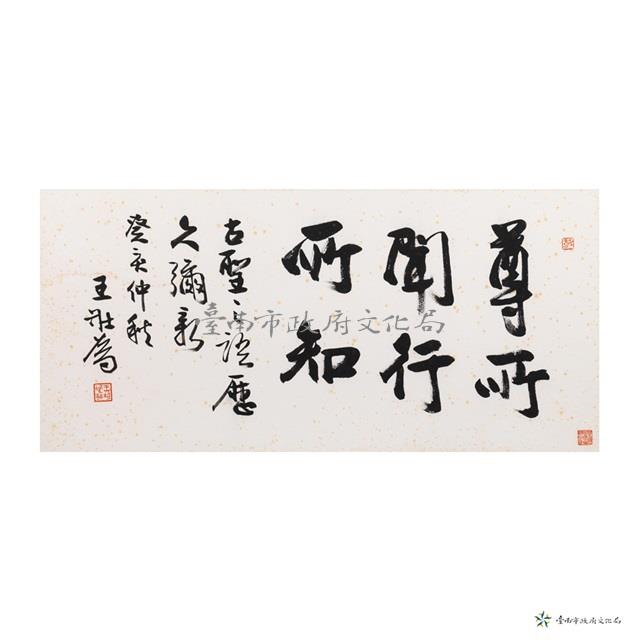 尊所
聞行
所知
古聖之證歷
久彌新
癸亥仲秋
王壯為
臺南市政府文化局
臺南市政府文化局